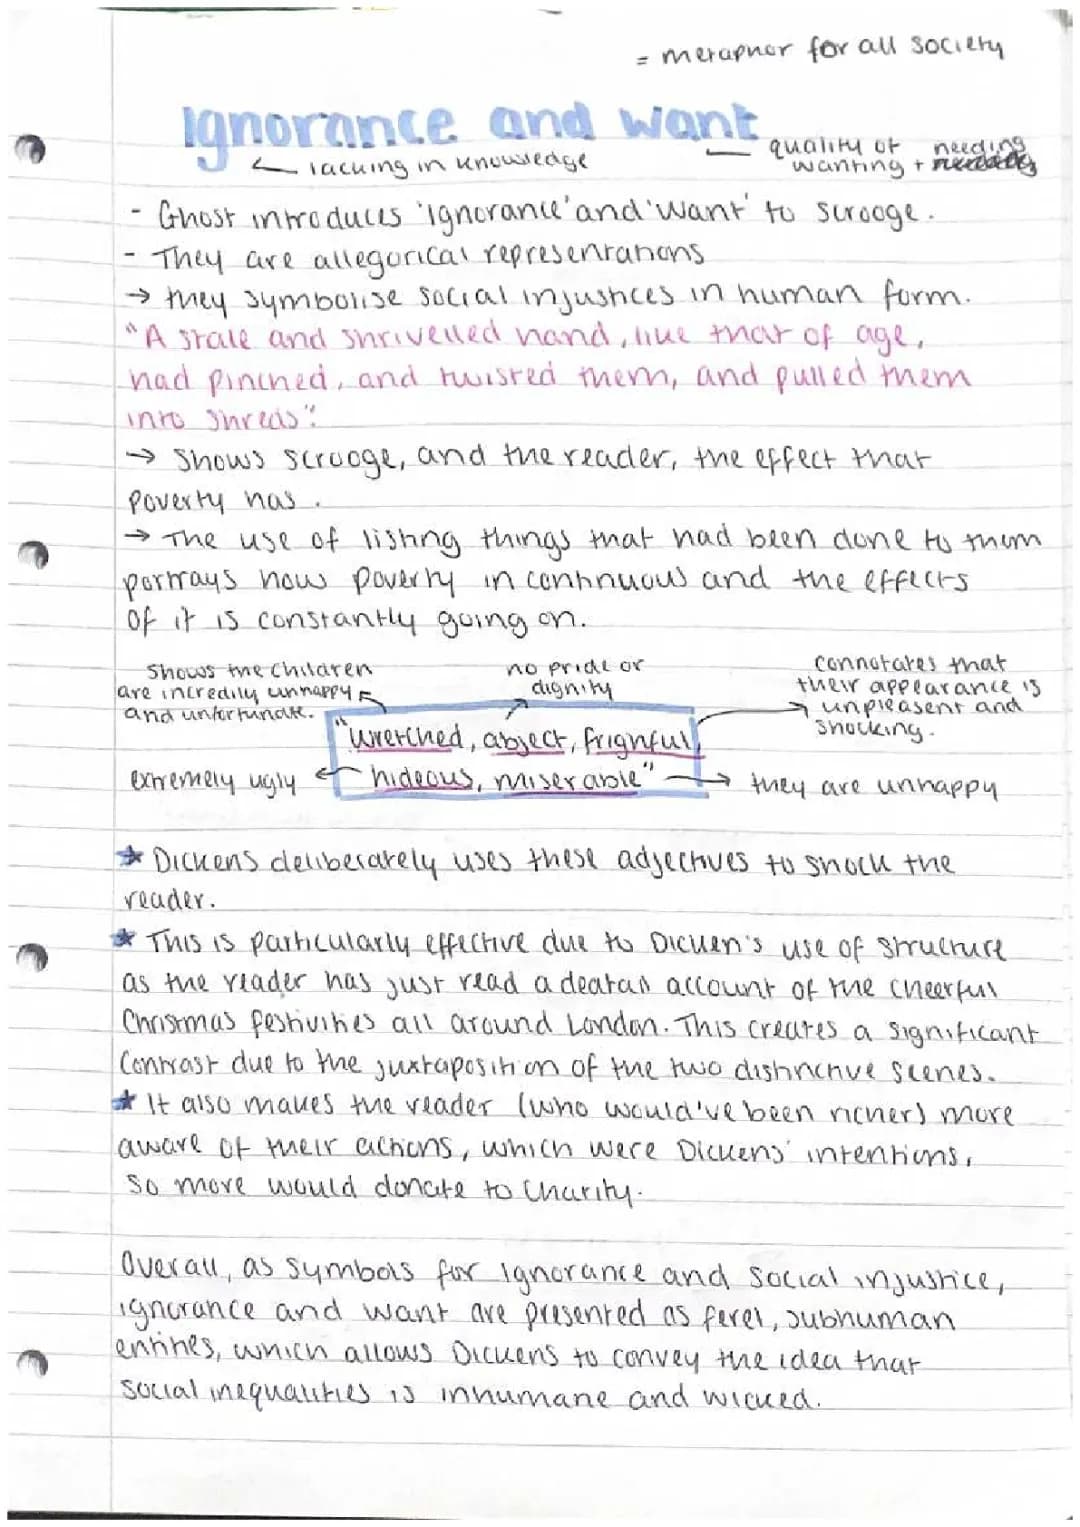 = metaphor for all society
Ignorance and want
← lacking in knowledge
quality of needing
wanting +
- Ghost introduces 'ignorance' and 'want' to scrooge.
- They are allegorical representations
→ they symbolise social injustices in human form.
"A stale and shrivelled hand, like that of age,
had pinched, and twisted them, and pulled them
into shreds".
→ Shows scrooge, and the reader, the effect that
poverty has.
→ The use of listing things that had been done to them
portrays how poverty in continuous and the effects
of it is constantly going on.
Shows the children
are incredily unhappy
and unfortunate.
no pride or
dignity
connotates that
their appearance is
unpleasent and
shocking.
"wretched, abject, frighful,
hideous, miserable"
extremely ugly
they are unhappy
★ Dickens deliberately uses these adjectives to shock the
reader.
★ This is particularly effective due to Dicken's use of structure
as the reader has just read a deatail account of the cheerful
Christmas festivities all around London. This creates a significant
contrast due to the juxtaposition of the two distinctive scenes.
★ It also makes the reader (who would've been richer) more
aware of their actions, which were Dickens' intentions,
so more would donate to charity.
Overall, as symbols for ignorance and social injustice,
ignorance and want are presented as ferel, subhuman
entities, which allows Dickens to convey the idea that
social inequalities is inhumane and wicked.